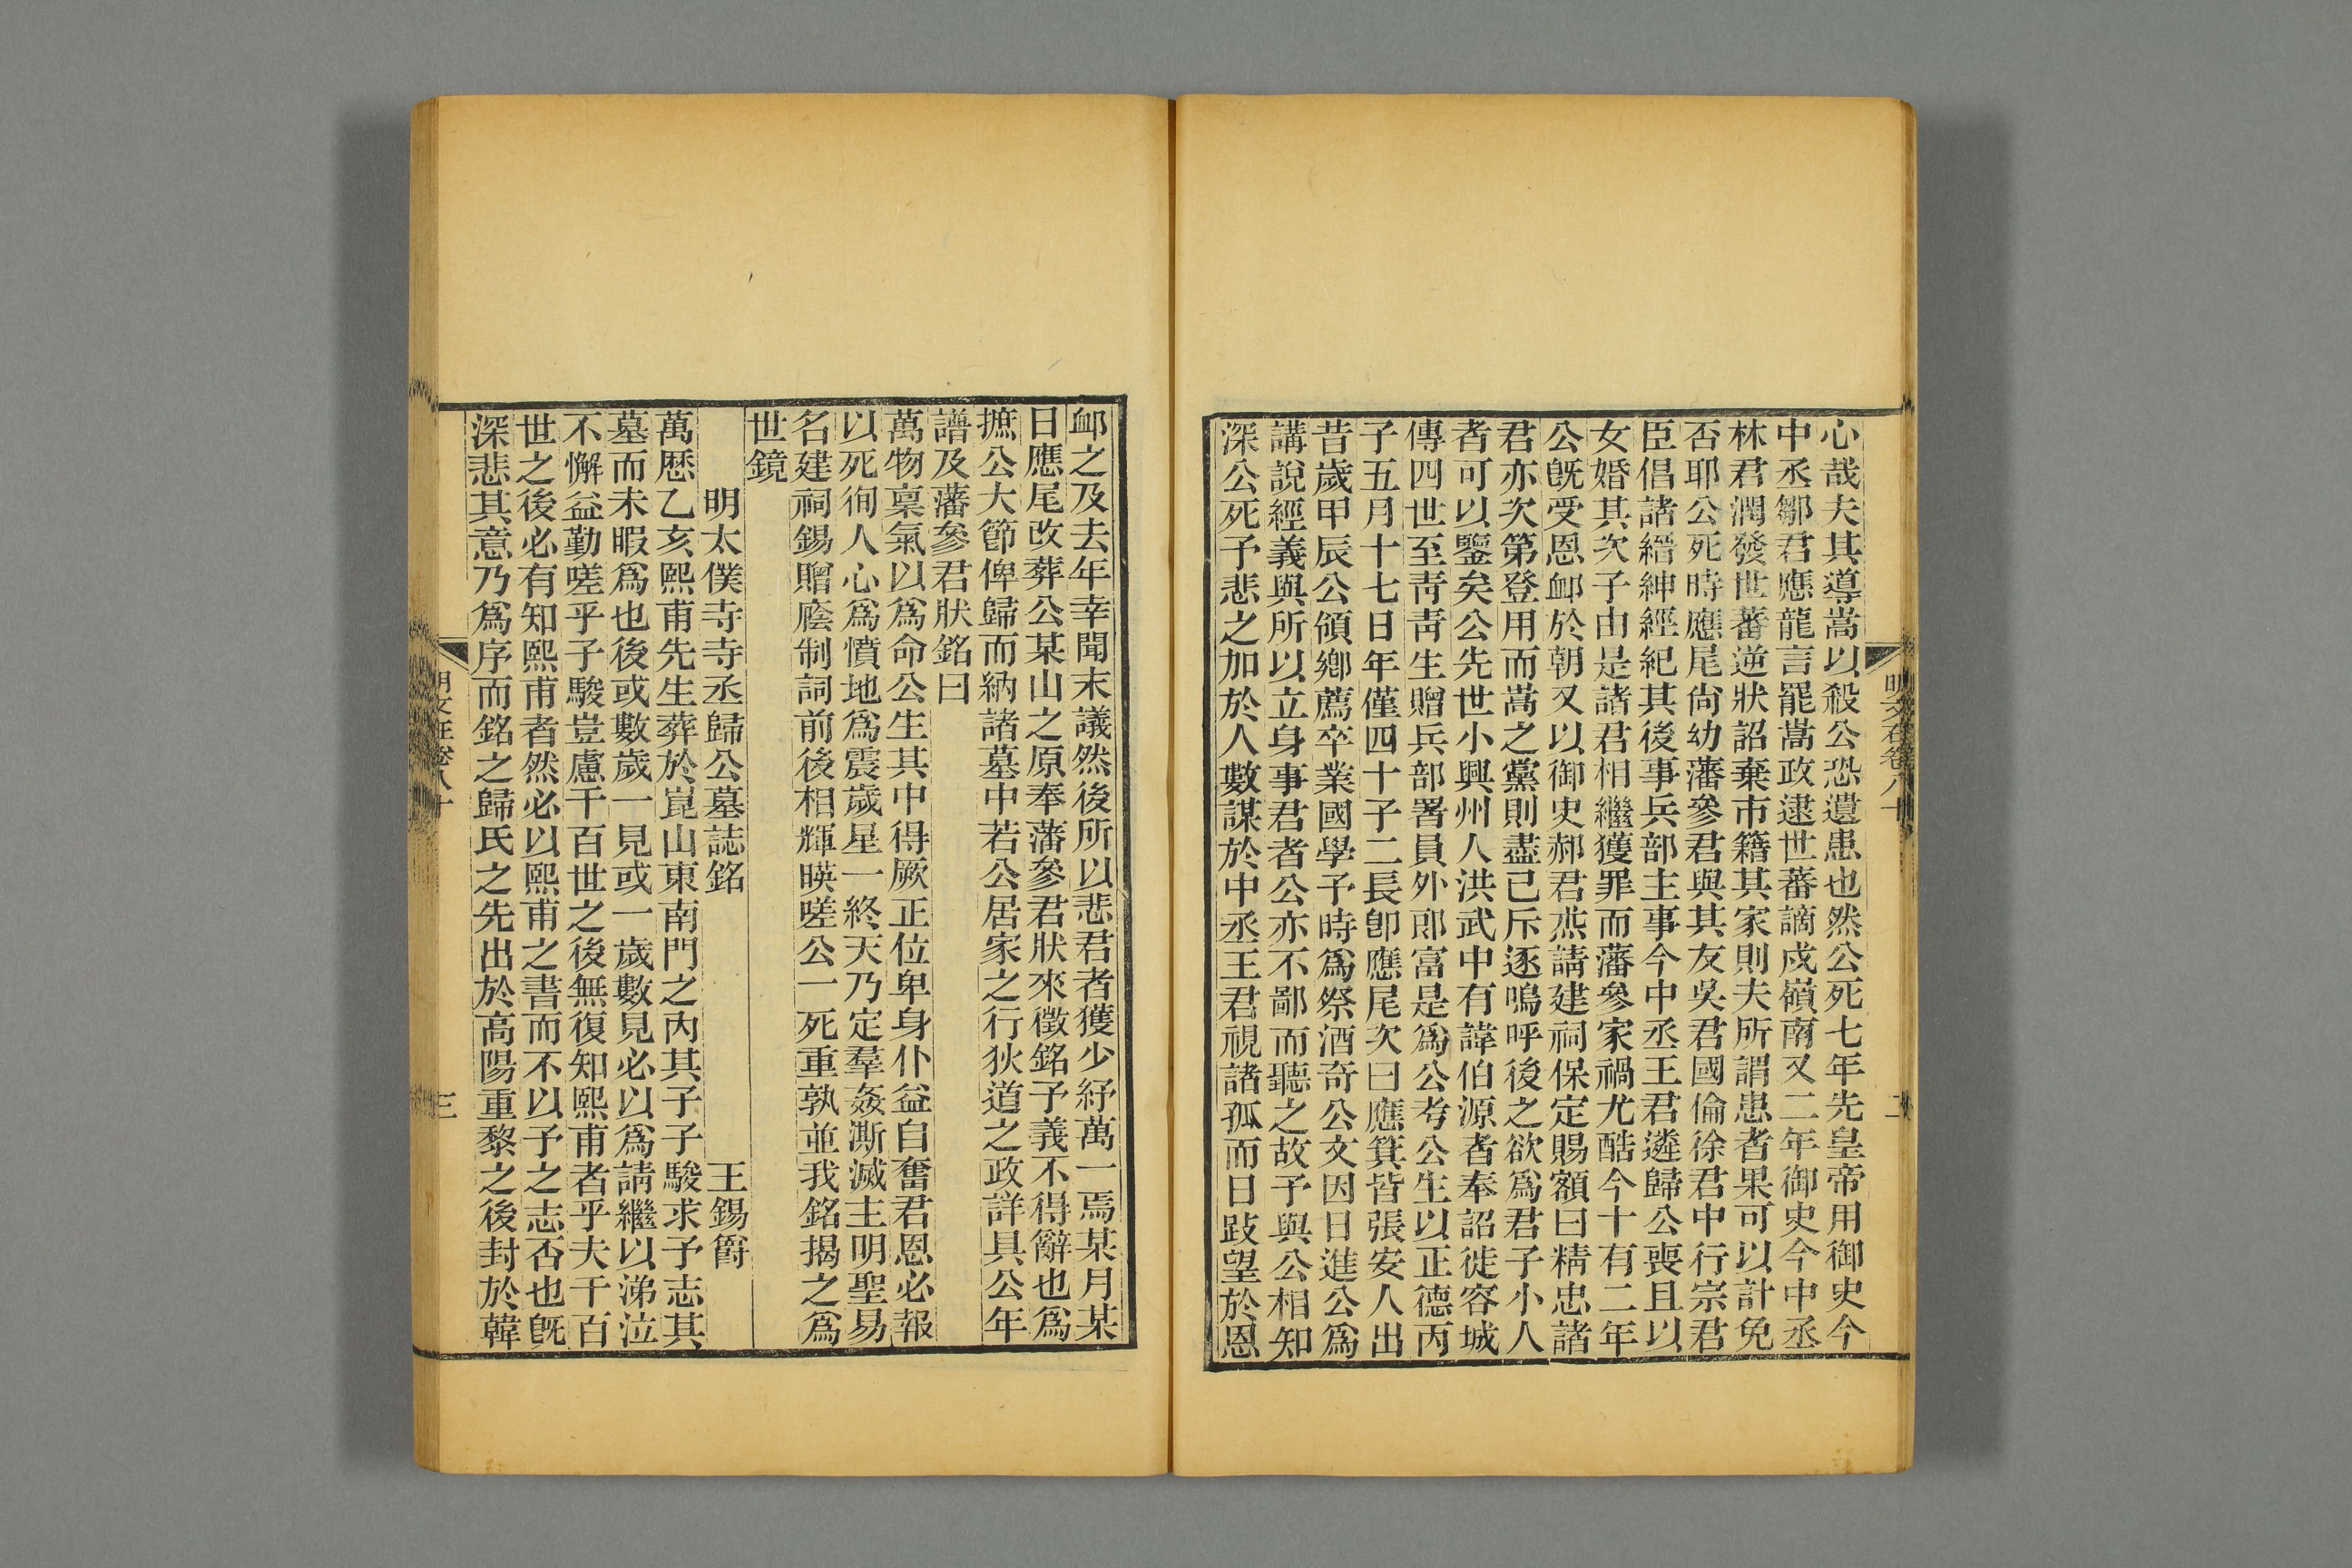 心哉夫其導嵩以殺公恐遺患也然公死七年先皇帝用御史今
中丞鄒君應龍言罷嵩政逮世蕃謫戍嶺南又二年御史今中丞
林君潤發世蕃逆狀詔棄市籍其家則夫所謂患者果可以計免
否耶公死時應尾尙幼藩參君與其友吳君國倫徐君中行宗君
臣倡諸縉紳經紀其後事兵部主事今中丞王君遴歸公喪且以
女婚其次子由是諸君相繼獲罪而藩參家禍尤酷今十有二年
公旣受恩卹於朝又以御史郝君烝請建祠保定賜額曰精忠諸
君亦次第登用而嵩之黨則盡已斥逐嗚呼後之欲爲君子小人
者可以鑒矣公先世小興州人洪武中有諱伯源者奉詔徙容城
傳四世至靑靑生贈兵部署員外郎富是爲公考公生以正德丙
子五月十七日年僅四十子二長卽應尾次曰應箕皆張安人出
昔歲甲辰公領鄕薦卒業國學予時爲祭酒奇公文因日進公爲
講說經義與所以立身事君者公亦不鄙而聽之故予與公相知
深公死予悲之加於人數謀於中丞王君視諸孤而日跂望於恩
明文在卷八十
二
卹之及去年幸聞末議然後所以悲君者獲少紓萬一焉某月某
日應尾改葬公某山之原奉藩參君狀來徵銘予義不得辭也爲
摭公大節俾歸而納諸墓中若公居家之行狄道之政詳具公年
譜及藩參君狀銘曰
萬物稟氣以爲命公生其中得厥正位卑身仆益自奮君恩必報
以死徇人心爲憤地爲震歲星一終天乃定羣姦澌滅主明聖易
名建祠錫贈廕制詞前後相輝暎嗟公一死重孰並我銘揭之爲
世鏡
明太僕寺寺丞歸公墓誌銘　王錫爵
萬歷乙亥熙甫先生葬於崑山東南門之內其子子駿求予志其
墓而未暇爲也後或數歲一見或一歲數見必以爲請繼以涕泣
不懈益勤嗟乎子駿豈慮千百世之後無復知熙甫者乎夫千百
世之後必有知熙甫者然必以熙甫之書而不以予之志否也旣
深悲其意乃爲序而銘之歸氏之先出於高陽重黎之後封於韓
明文在卷八十
三